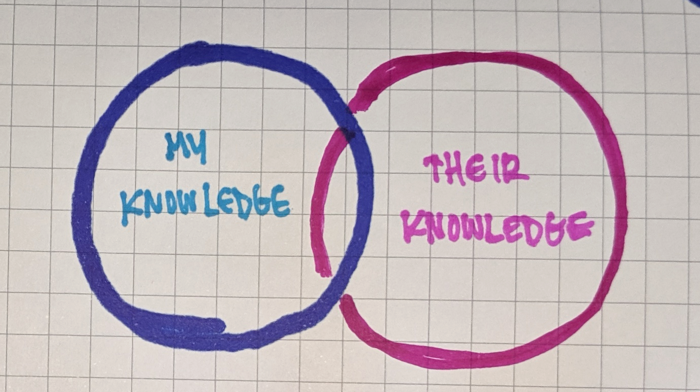 MY
KNOWLEDGE
THEIR
KNOWLEDGE